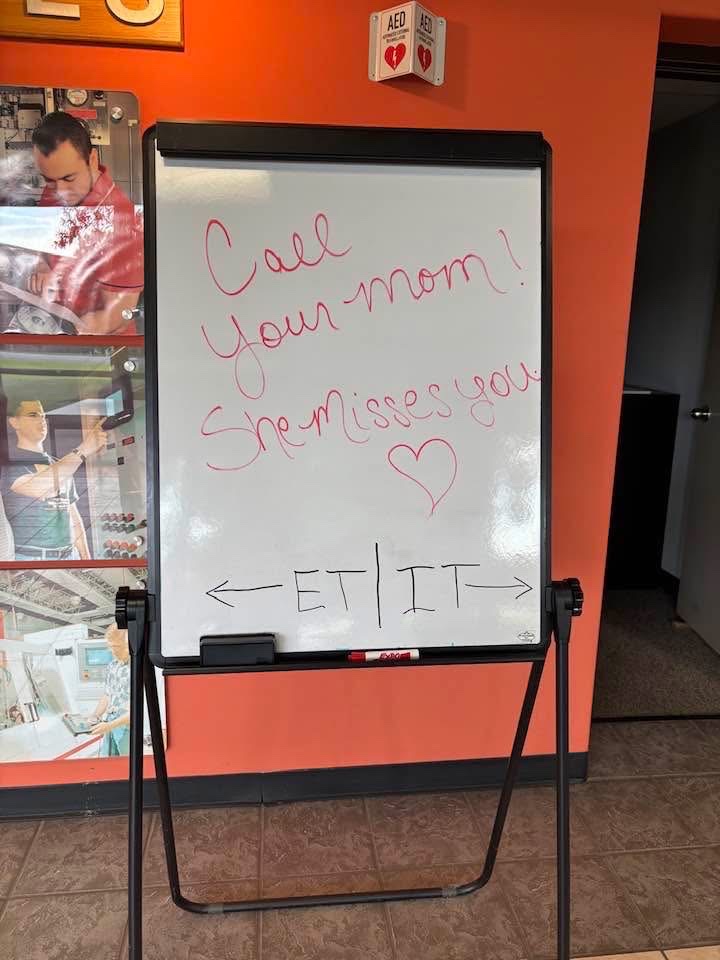 AED
AED
Call
Your mom!
She misses you
← ET | IT →
EXPO